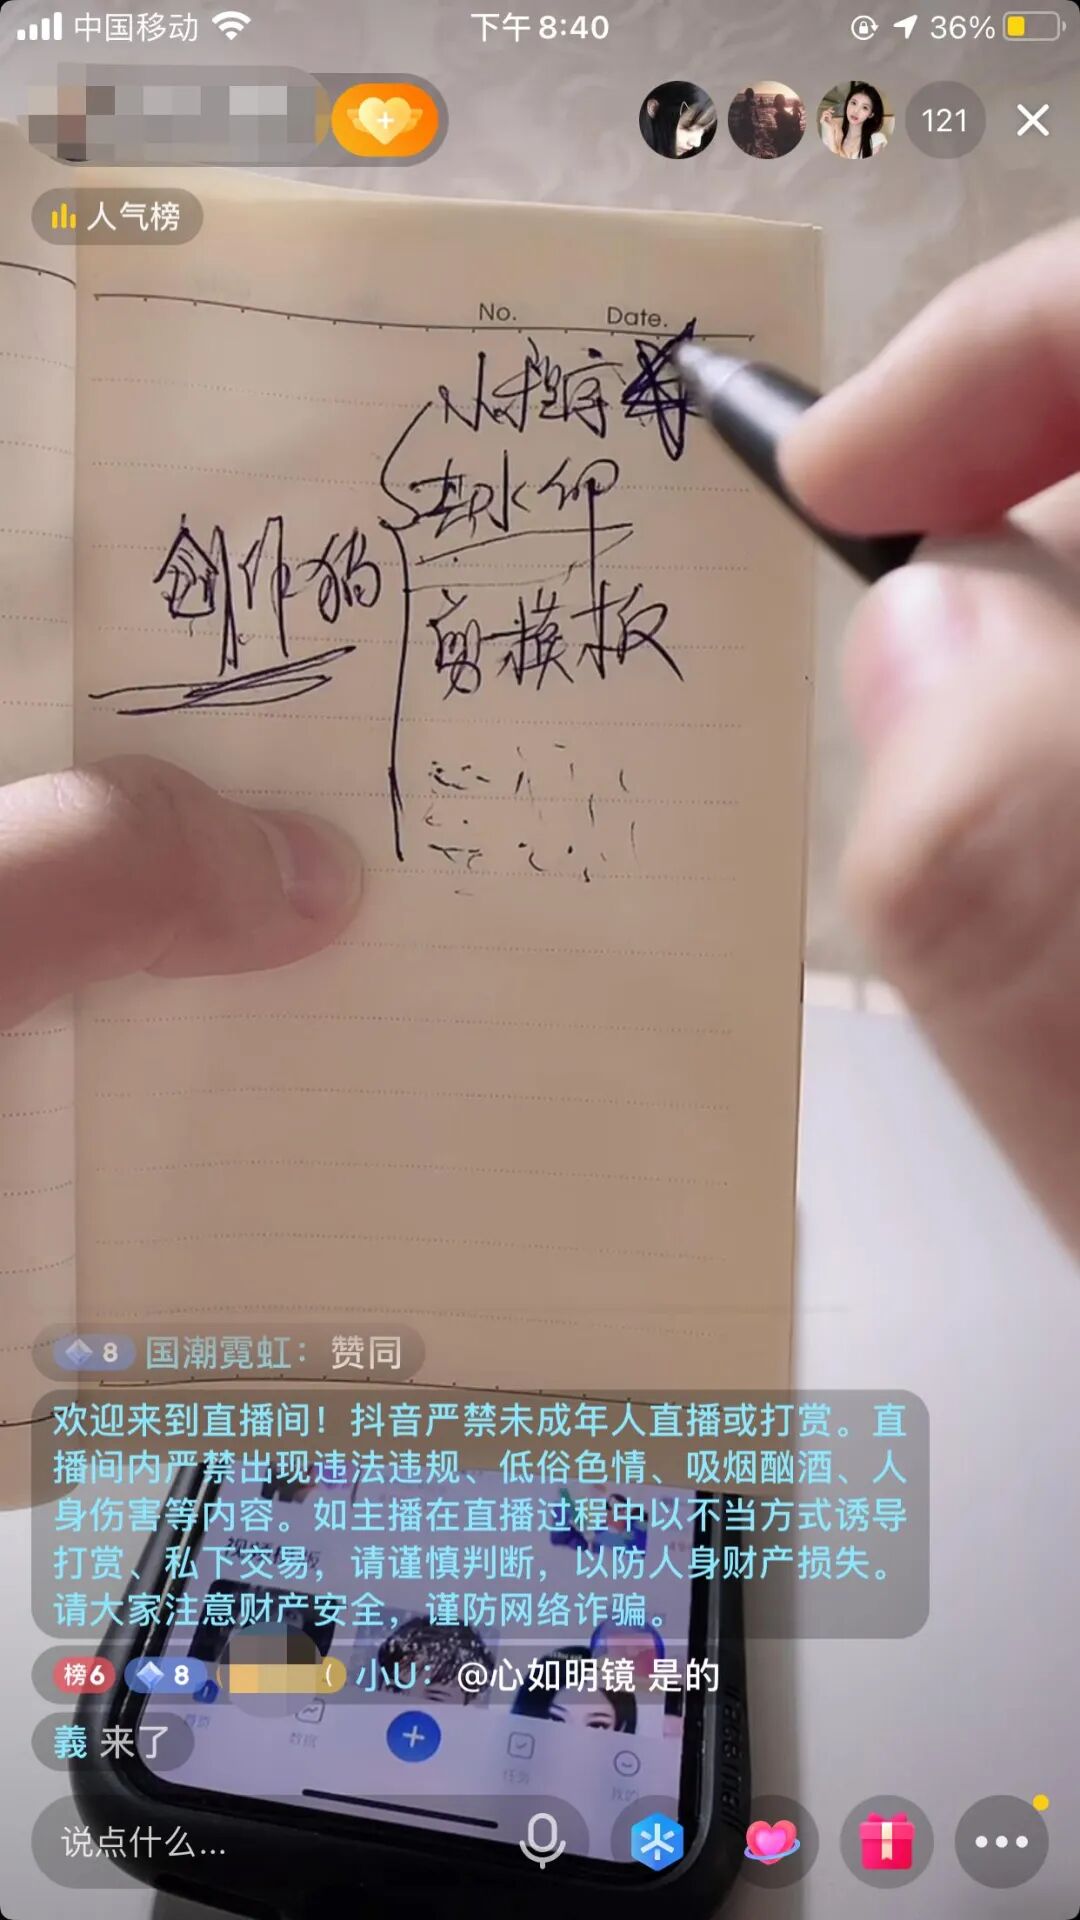 中国移动
下午8:40
36%
121
人气榜
No.
Date.
小程序
去水印
创作猫
剪模板
8 国潮霓虹：赞同
欢迎来到直播间！抖音严禁未成年人直播或打赏。直
播间内严禁出现违法违规、低俗色情、吸烟酗酒、人
身伤害等内容。如主播在直播过程中以不当方式诱导
打赏、私下交易，请谨慎判断，以防人身财产损失。
请大家注意财产安全，谨防网络诈骗。
榜6 8 （小U：@心如明镜 是的
義 来了
首页
数据
任务
我的
说点什么...